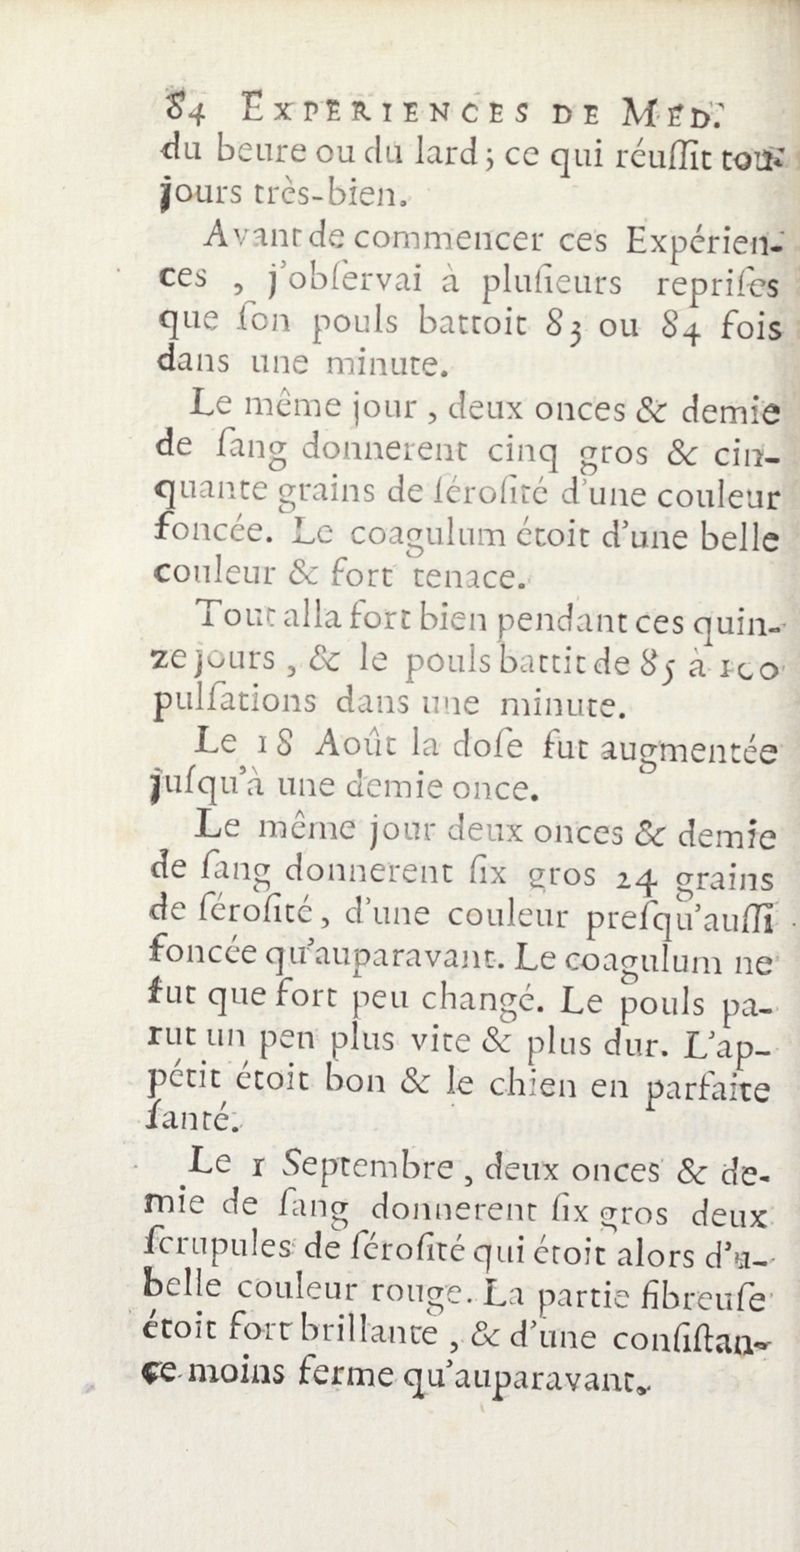 84 EXPERIENCES DE MÉD.
du beure ou du lard ; ce qui réuſſit tou-
jours très-bien.
Avant de commencer ces Expérien-
ces , j'obſervai à pluſieurs repriſes
que ſon pouls battoit 83 ou 84 fois
dans une minute.
Le même jour , deux onces & demie
de ſang donnerent cinq gros & cin-
quante grains de ſéroſité d'une couleur
foncée. Le coagulum étoit d'une belle
couleur & fort tenace.
Tout alla fort bien pendant ces quin-
ze jours , & le pouls battit de 85 à 100
pulſations dans une minute.
Le 18 Août la doſe fut augmentée
juſqu'à une demie once.
Le même jour deux onces & demie
de ſang donnerent ſix gros 24 grains
de ſéroſité, d'une couleur preſqu'auſſi
foncée qu'auparavant. Le coagulum ne
fut que fort peu changé. Le pouls pa-
rut un pen plus vite & plus dur. L'ap-
pétit étoit bon & le chien en parfaite
ſanté.
Le 1 Septembre , deux onces & de-
mie de ſang donnerent ſix gros deux
ſcrupules de ſéroſité qui étoit alors d'u-
belle couleur rouge. La partie fibreuſe
étoit fort brillante , & d'une conſiſtan-
ce moins ferme qu'auparavant.